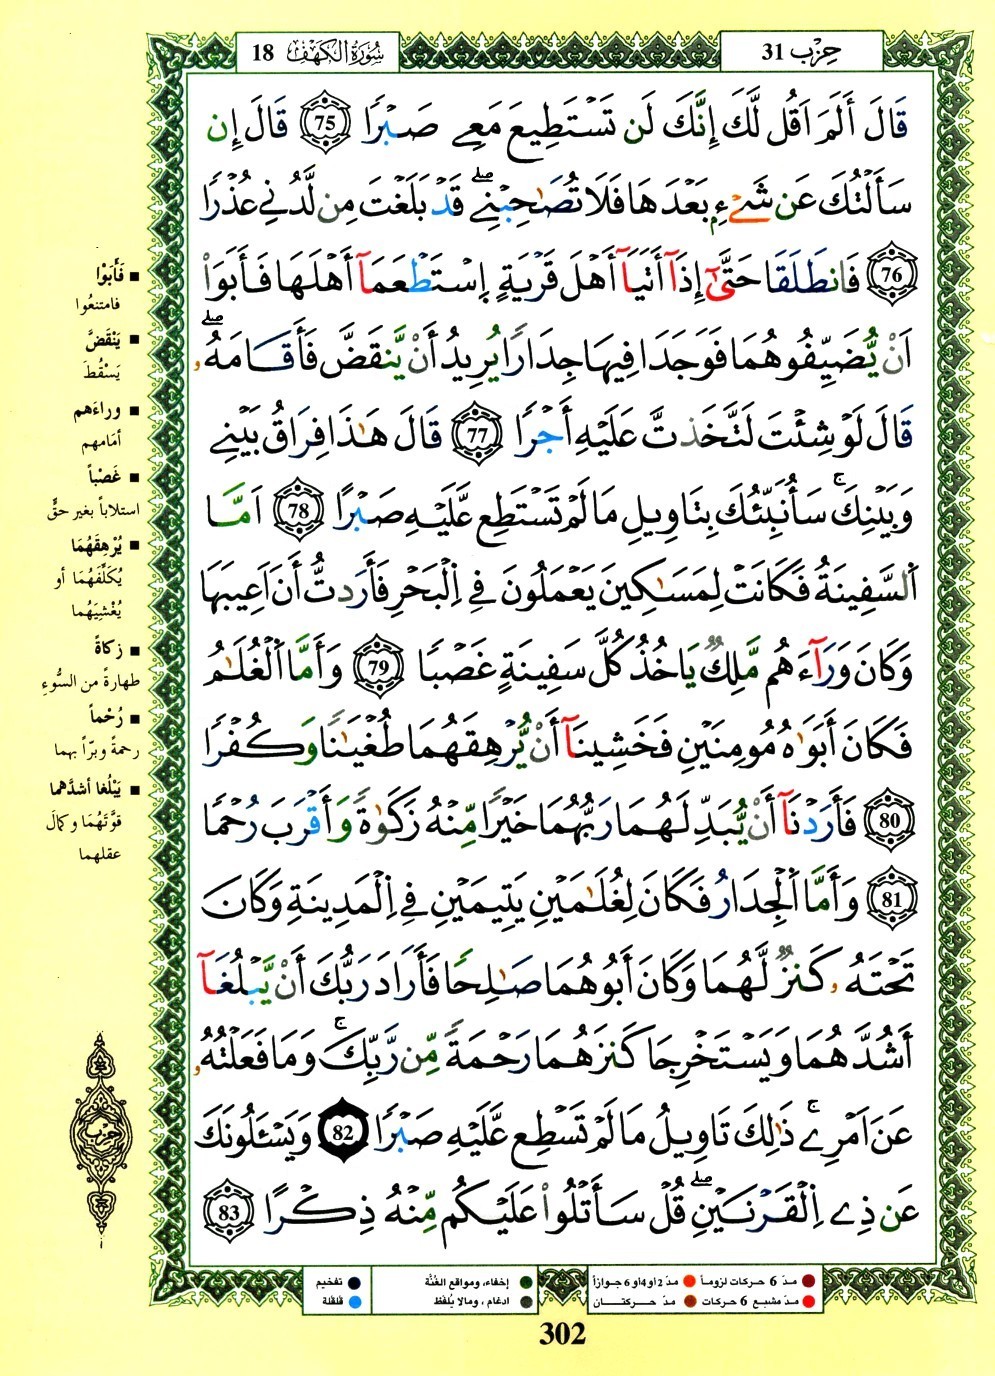 سُورَةُ الكَهْفِ 18
حِزْب 31
قَالَ أَلَمَ اَقُل لَّكَ إِنَّكَ لَن تَسْتَطِيعَ مَعِے صَبْرًا 75 قَالَ إِن
سَأَلْتُكَ عَن شَےْءٍۢ بَعْدَهَا فَلَا تُصَٰحِبْنِےۖ قَدْ بَلَغْتَ مِن لَّدُنِے عُذْرًا
76 فَانطَلَقَا حَتَّىٰٓ إِذَآ أَتَيَآ أَهْلَ قَرْيَةٍ اِ۪سْتَطْعَمَآ أَهْلَهَا فَأَبَوْاْ
اَنْ يُّضَيِّفُوهُمَا فَوَجَدَا فِيهَا جِدَارًا يُرِيدُ أَنْ يَّنقَضَّ فَأَقَامَهُۥۖ
قَالَ لَوْ شِئْتَ لَتَّخَذتَّ عَلَيْهِ أَجْرًا 77 قَالَ هَٰذَا فِرَاقُ بَيْنِے
وَبَيْنِكَۚ سَأُنَبِّئُكَ بِتَاوِيلِ مَا لَمْ تَسْتَطِع عَّلَيْهِ صَبْرًا 78 اَمَّا
اَ۬لسَّفِينَةُ فَكَانَتْ لِمَسَٰكِينَ يَعْمَلُونَ فِے اِ۬لْبَحْرِ فَأَرَدتُّ أَنَ اَعِيبَهَا
وَكَانَ وَرَآءَهُم مَّلِكٌ يَاخُذُ كُلَّ سَفِينَةٍ غَصْبًا 79 وَأَمَّا اَ۬لْغُلَٰمُ
فَكَانَ أَبَوَٰهُ مُومِنَيْنِ فَخَشِينَآ أَنْ يُّرْهِقَهُمَا طُغْيَٰنًا وَكُفْرًا
80 فَأَرَدْنَآ أَنْ يُّبَدِّلَهُمَا رَبُّهُمَا خَيْرًا مِّنْهُ زَكَوٰةً وَأَقْرَبَ رُحْمًا
81 وَأَمَّا اَ۬لْجِدَارُ فَكَانَ لِغُلَٰمَيْنِ يَتِيمَيْنِ فِے اِ۬لْمَدِينَةِ وَكَانَ
تَحْتَهُۥ كَنزٌ لَّهُمَا وَكَانَ أَبُوهُمَا صَٰلِحًا فَأَرَادَ رَبُّكَ أَنْ يَّبْلُغَآ
أَشُدَّهُمَا وَيَسْتَخْرِجَا كَنزَهُمَا رَحْمَةً مِّن رَّبِّكَۚ وَمَا فَعَلْتُهُۥ
عَنَ اَمْرِےۚ ذَٰلِكَ تَاوِيلُ مَا لَمْ تَسْطِع عَّلَيْهِ صَبْرًا 82 وَيَسْـَٔلُونَكَ
عَن ذِے اِ۬لْقَرْنَيْنِۖ قُلْ سَأَتْلُواْ عَلَيْكُم مِّنْهُ ذِكْرًا 83
■ فَأَبَوْا
فامتنعُوا
■ يَنْقَضَّ
يَسْقُطَ
■ وراءَهم
أمَامهم
■ غَصْباً
استلاباً بغير حقٍّ
■ يُرْهِقَهُمَا
يُكَلِّفَهُمَا أو
يُغْشِيَهُما
■ زكاةً
طهارةً من السُّوءِ
■ رُحْماً
رحمةً وبرّاً بهما
■ يَبْلُغا أشدَّهما
قوَّتَهُمَا وكمالَ
عقلهما
حزب
● مدّ 6 حركات لزوماً ● مدّ 2 أو 4 أو 6 جوازاً
● مدّ مشبع 6 حركات ● مدّ حركتان
● إخفاء، ومواقع الغُنَّة
● ادغام، ومالا يُلفَظ
● تفخيم
● قلقلة
302